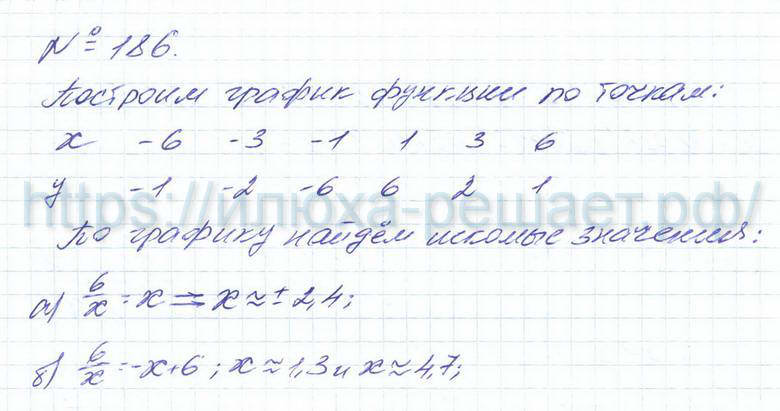 № 186.
Построим график функции по точкам:
x -6 -3 -1 1 3 6
y -1 -2 -6 6 2 1
https://илюха-решает.рф/
По графику найдём искомые значения:
а) 6/x = x => x ≈ ± 2,4;
б) 6/x = -x+6 ; x ≈ 1,3 и x ≈ 4,7;